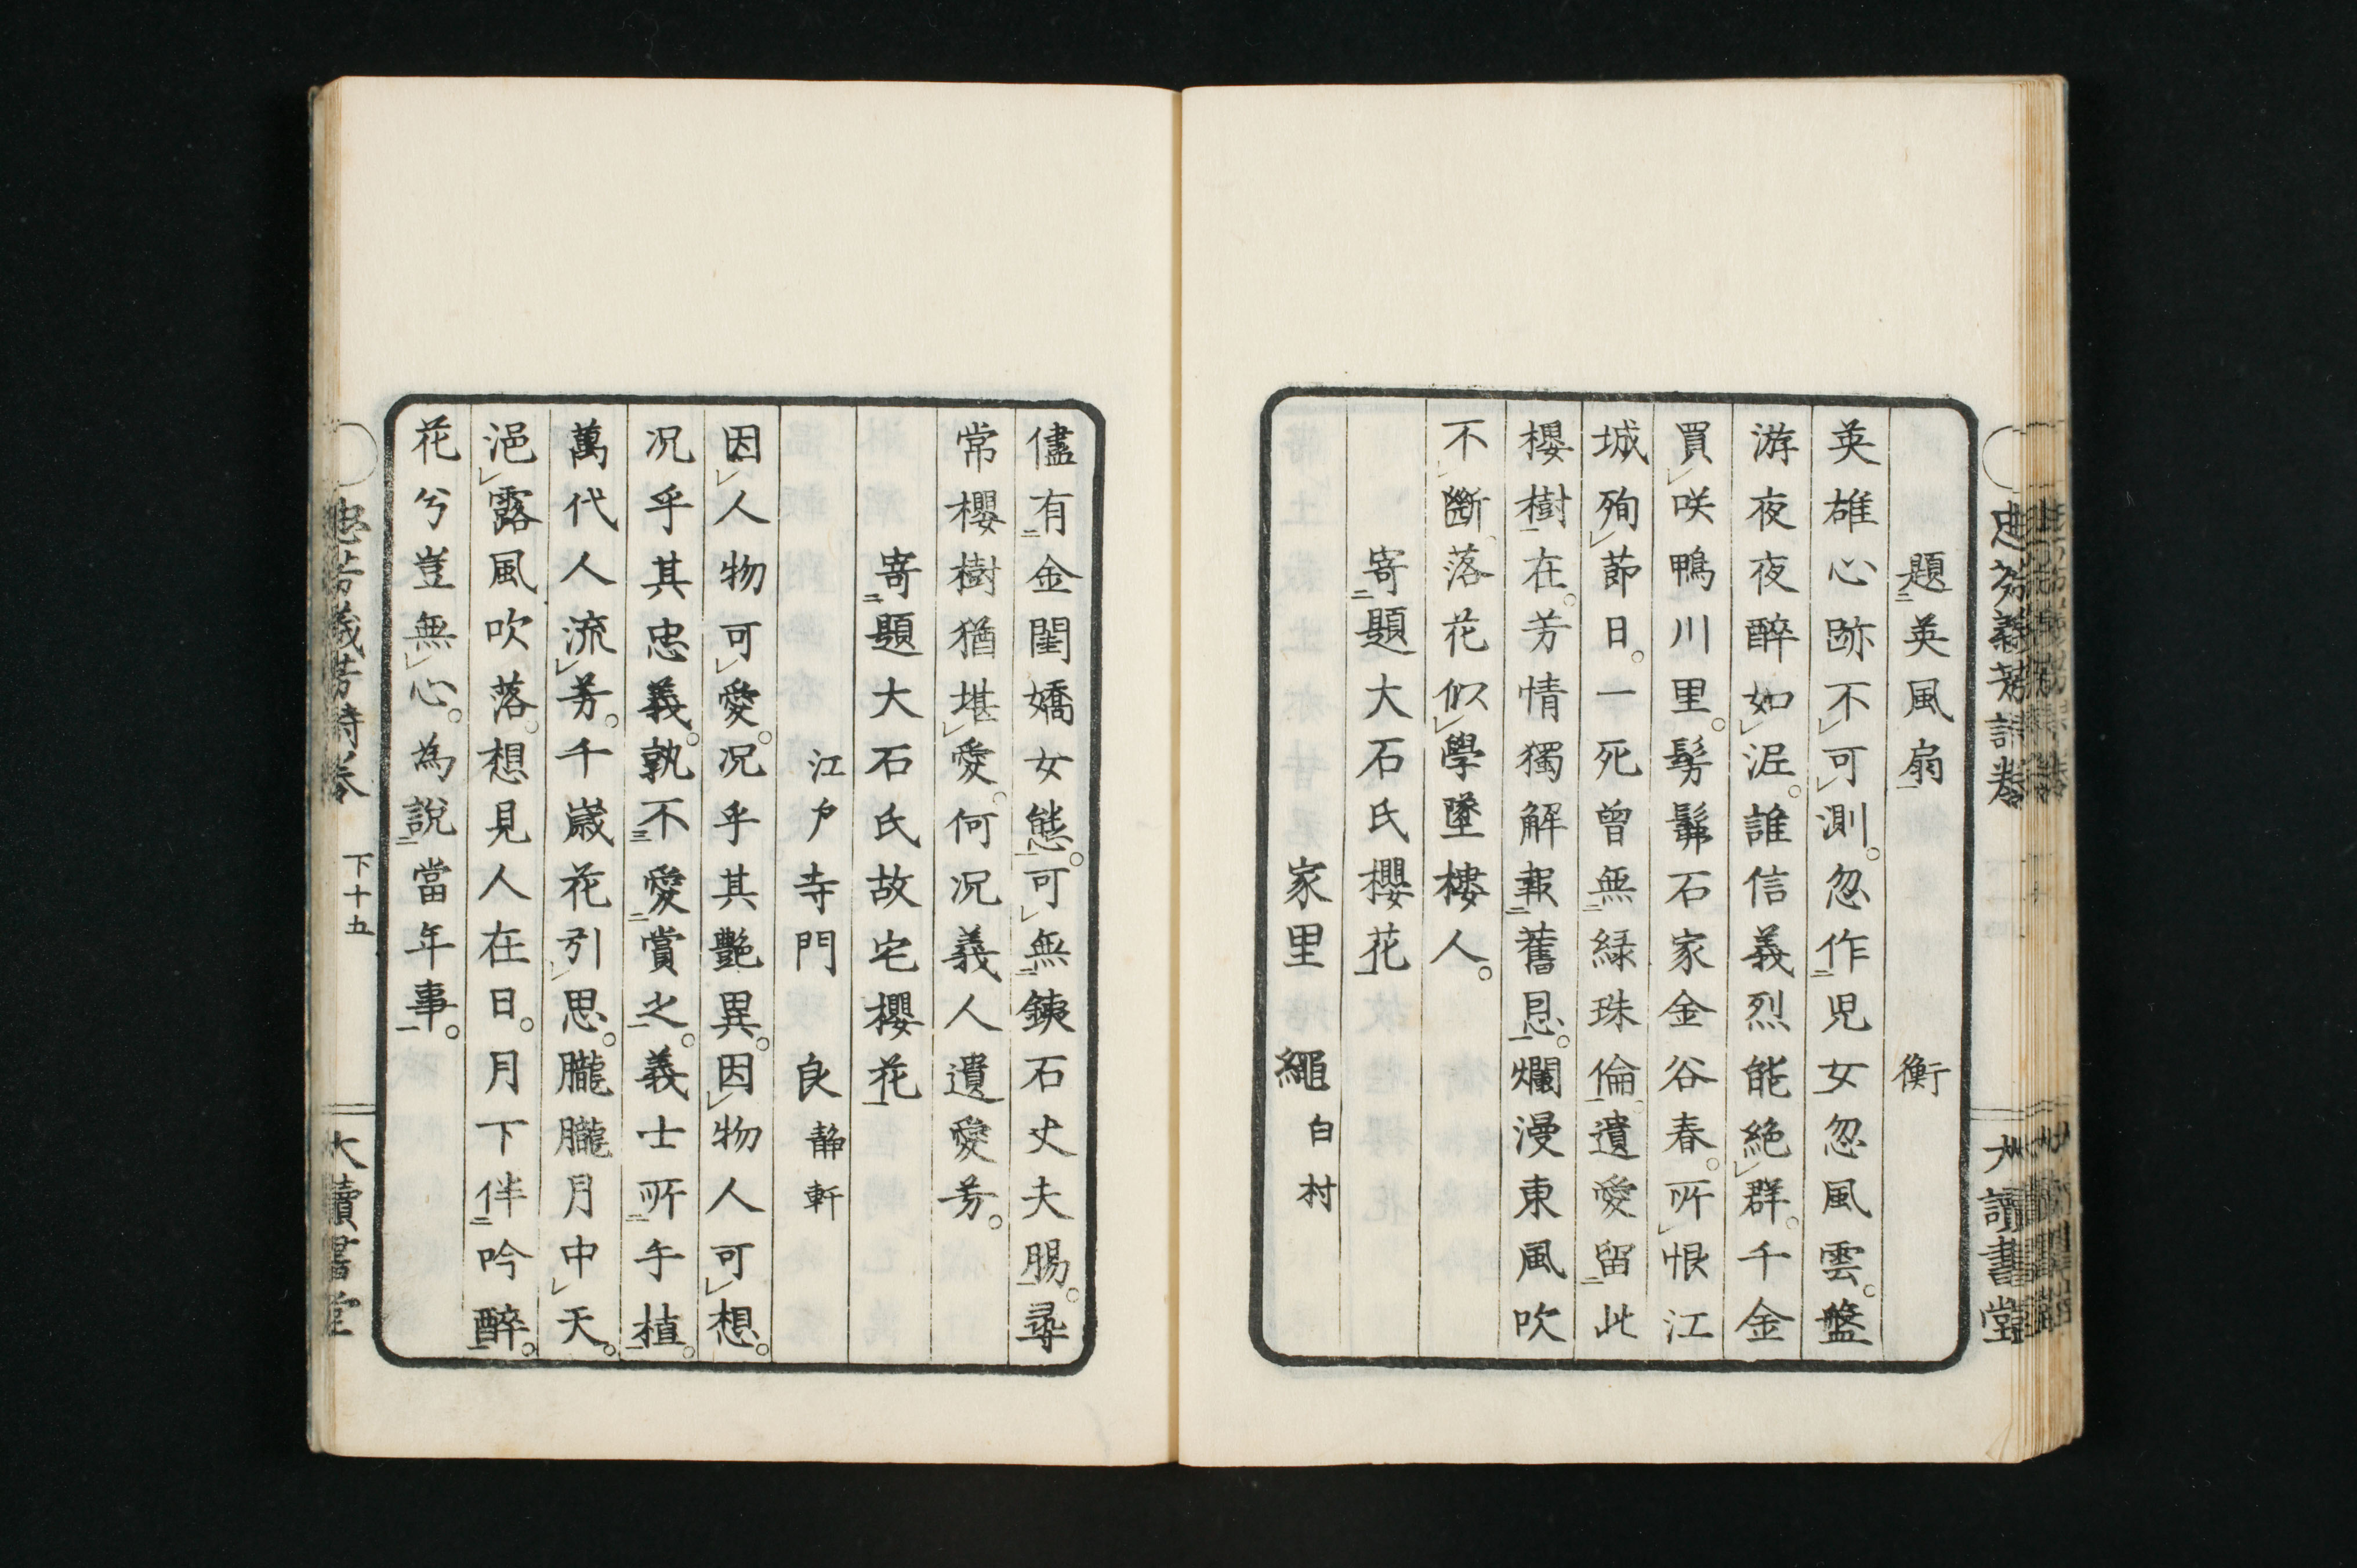 題英風扇 衡
英雄心跡不可測。忽作児女忽風雲。盤
游夜夜醉如泥。誰信義烈能絶群。千金
買咲鴨川里。髣髴石家金谷春。所恨江
城殉節日。一死曾無緑珠倫。遺愛留此
櫻樹在。芳情獨解報舊恩。爛漫東風吹
不斷落花似學墜樓人。
寄題大石氏櫻花
家里 繩 白村
儘有金閨嬌女態。可無銕石丈夫腸。尋
常櫻樹猶堪愛。何况義人遺愛芳。
寄題大石氏故宅櫻花
江戶寺門 良 静軒
因人物可愛。况乎其艶異。因物人可想。
况乎其忠義。孰不愛賞之。義士所手植。
萬代人流芳。千歳花引思。朧朧月中天。
浥露風吹落。想見人在日。月下伴吟醉。
花兮豈無心。為說當年事。
忠芬義芳詩巻 下十五 大讀書堂